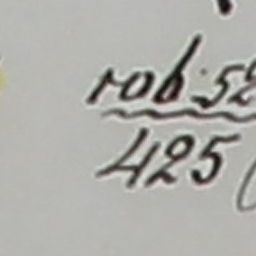 rob. 52
425